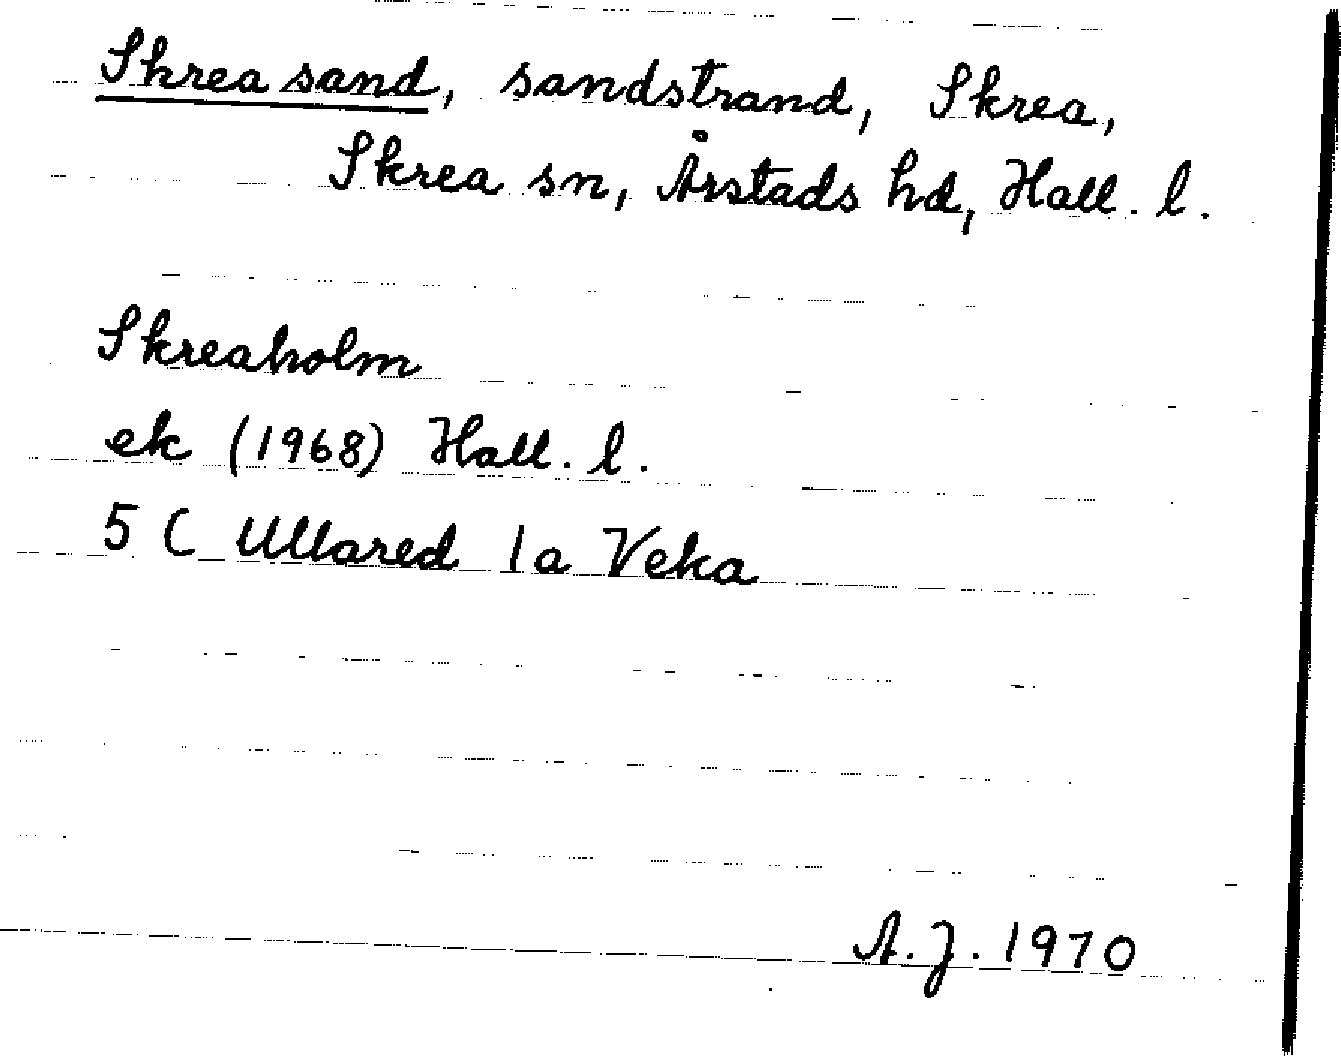 Skrea sand, sandstrand, Skrea,
Skrea sn, Årstads hd, Hall. l.
Skreaholm
ek (1968) Hall. l.
5 C Ullared 1a Veka
A.J. 1970